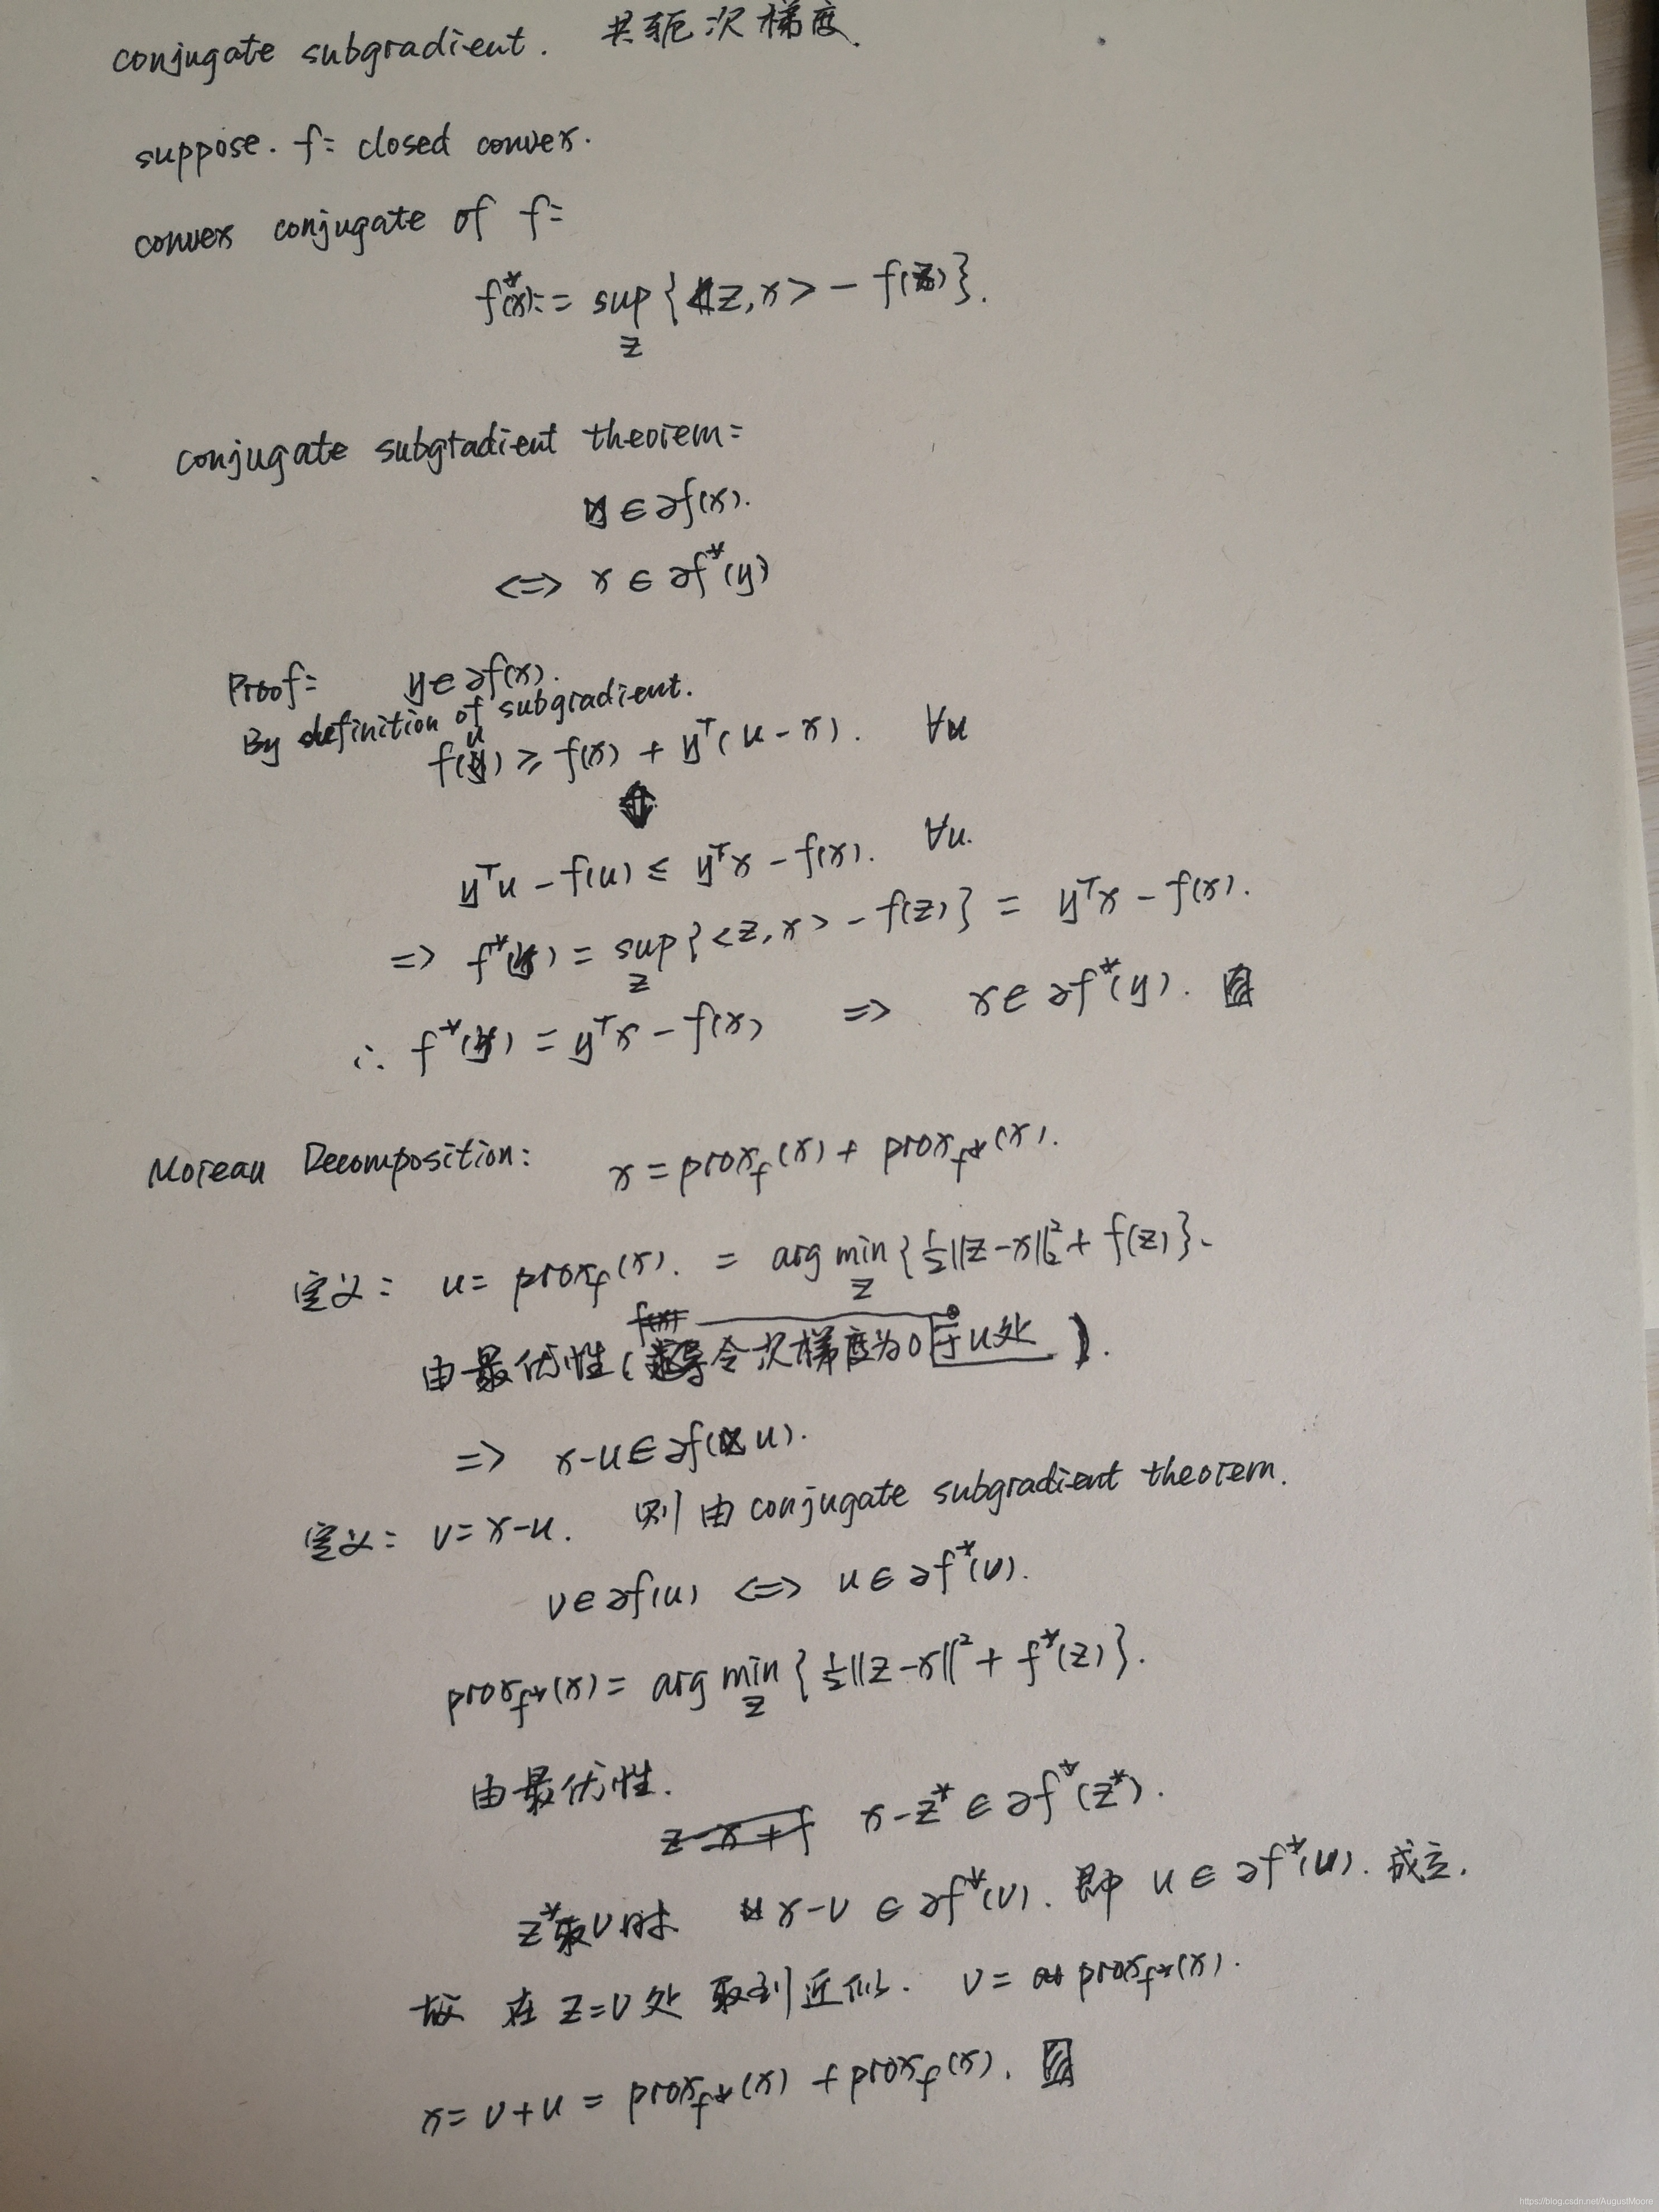 conjugate subgradient. 共轭次梯度.
suppose. f: closed convex.
convex conjugate of f:
f*(x):= sup_z {<z,x> - f(z)}.
conjugate subgradient theorem:
y ∈ ∂f(x).
<=> x ∈ ∂f*(y)
Proof: y ∈ ∂f(x).
By definition of subgradient.
f(u) ≥ f(x) + yᵀ(u-x). ∀u
⇕
yᵀu - f(u) ≤ yᵀx - f(x). ∀u.
=> f*(y) = sup_z {<z,x> - f(z)} = yᵀx - f(x).
∴ f*(y) = yᵀx - f(x) => x ∈ ∂f*(y).
Moreau Decomposition: x = prox_f(x) + prox_f*(x).
定义: u = prox_f(x). = arg min_z {½||z-x||₂² + f(z)}.
由最优性(令次梯度为0于u处).
=> x-u ∈ ∂f(u).
定义: v = x-u. 则由 conjugate subgradient theorem.
v ∈ ∂f(u) <=> u ∈ ∂f*(v).
prox_f*(x) = arg min_z {½||z-x||² + f*(z)}.
由最优性.
x-z* ∈ ∂f*(z*).
z*取v时 x-v ∈ ∂f*(v). 即 u ∈ ∂f*(u). 成立.
故 在 z=v 处 取到近似. v = prox_f*(x).
x = v+u = prox_f*(x) + prox_f(x).
https://blog.csdn.net/AugustMoore